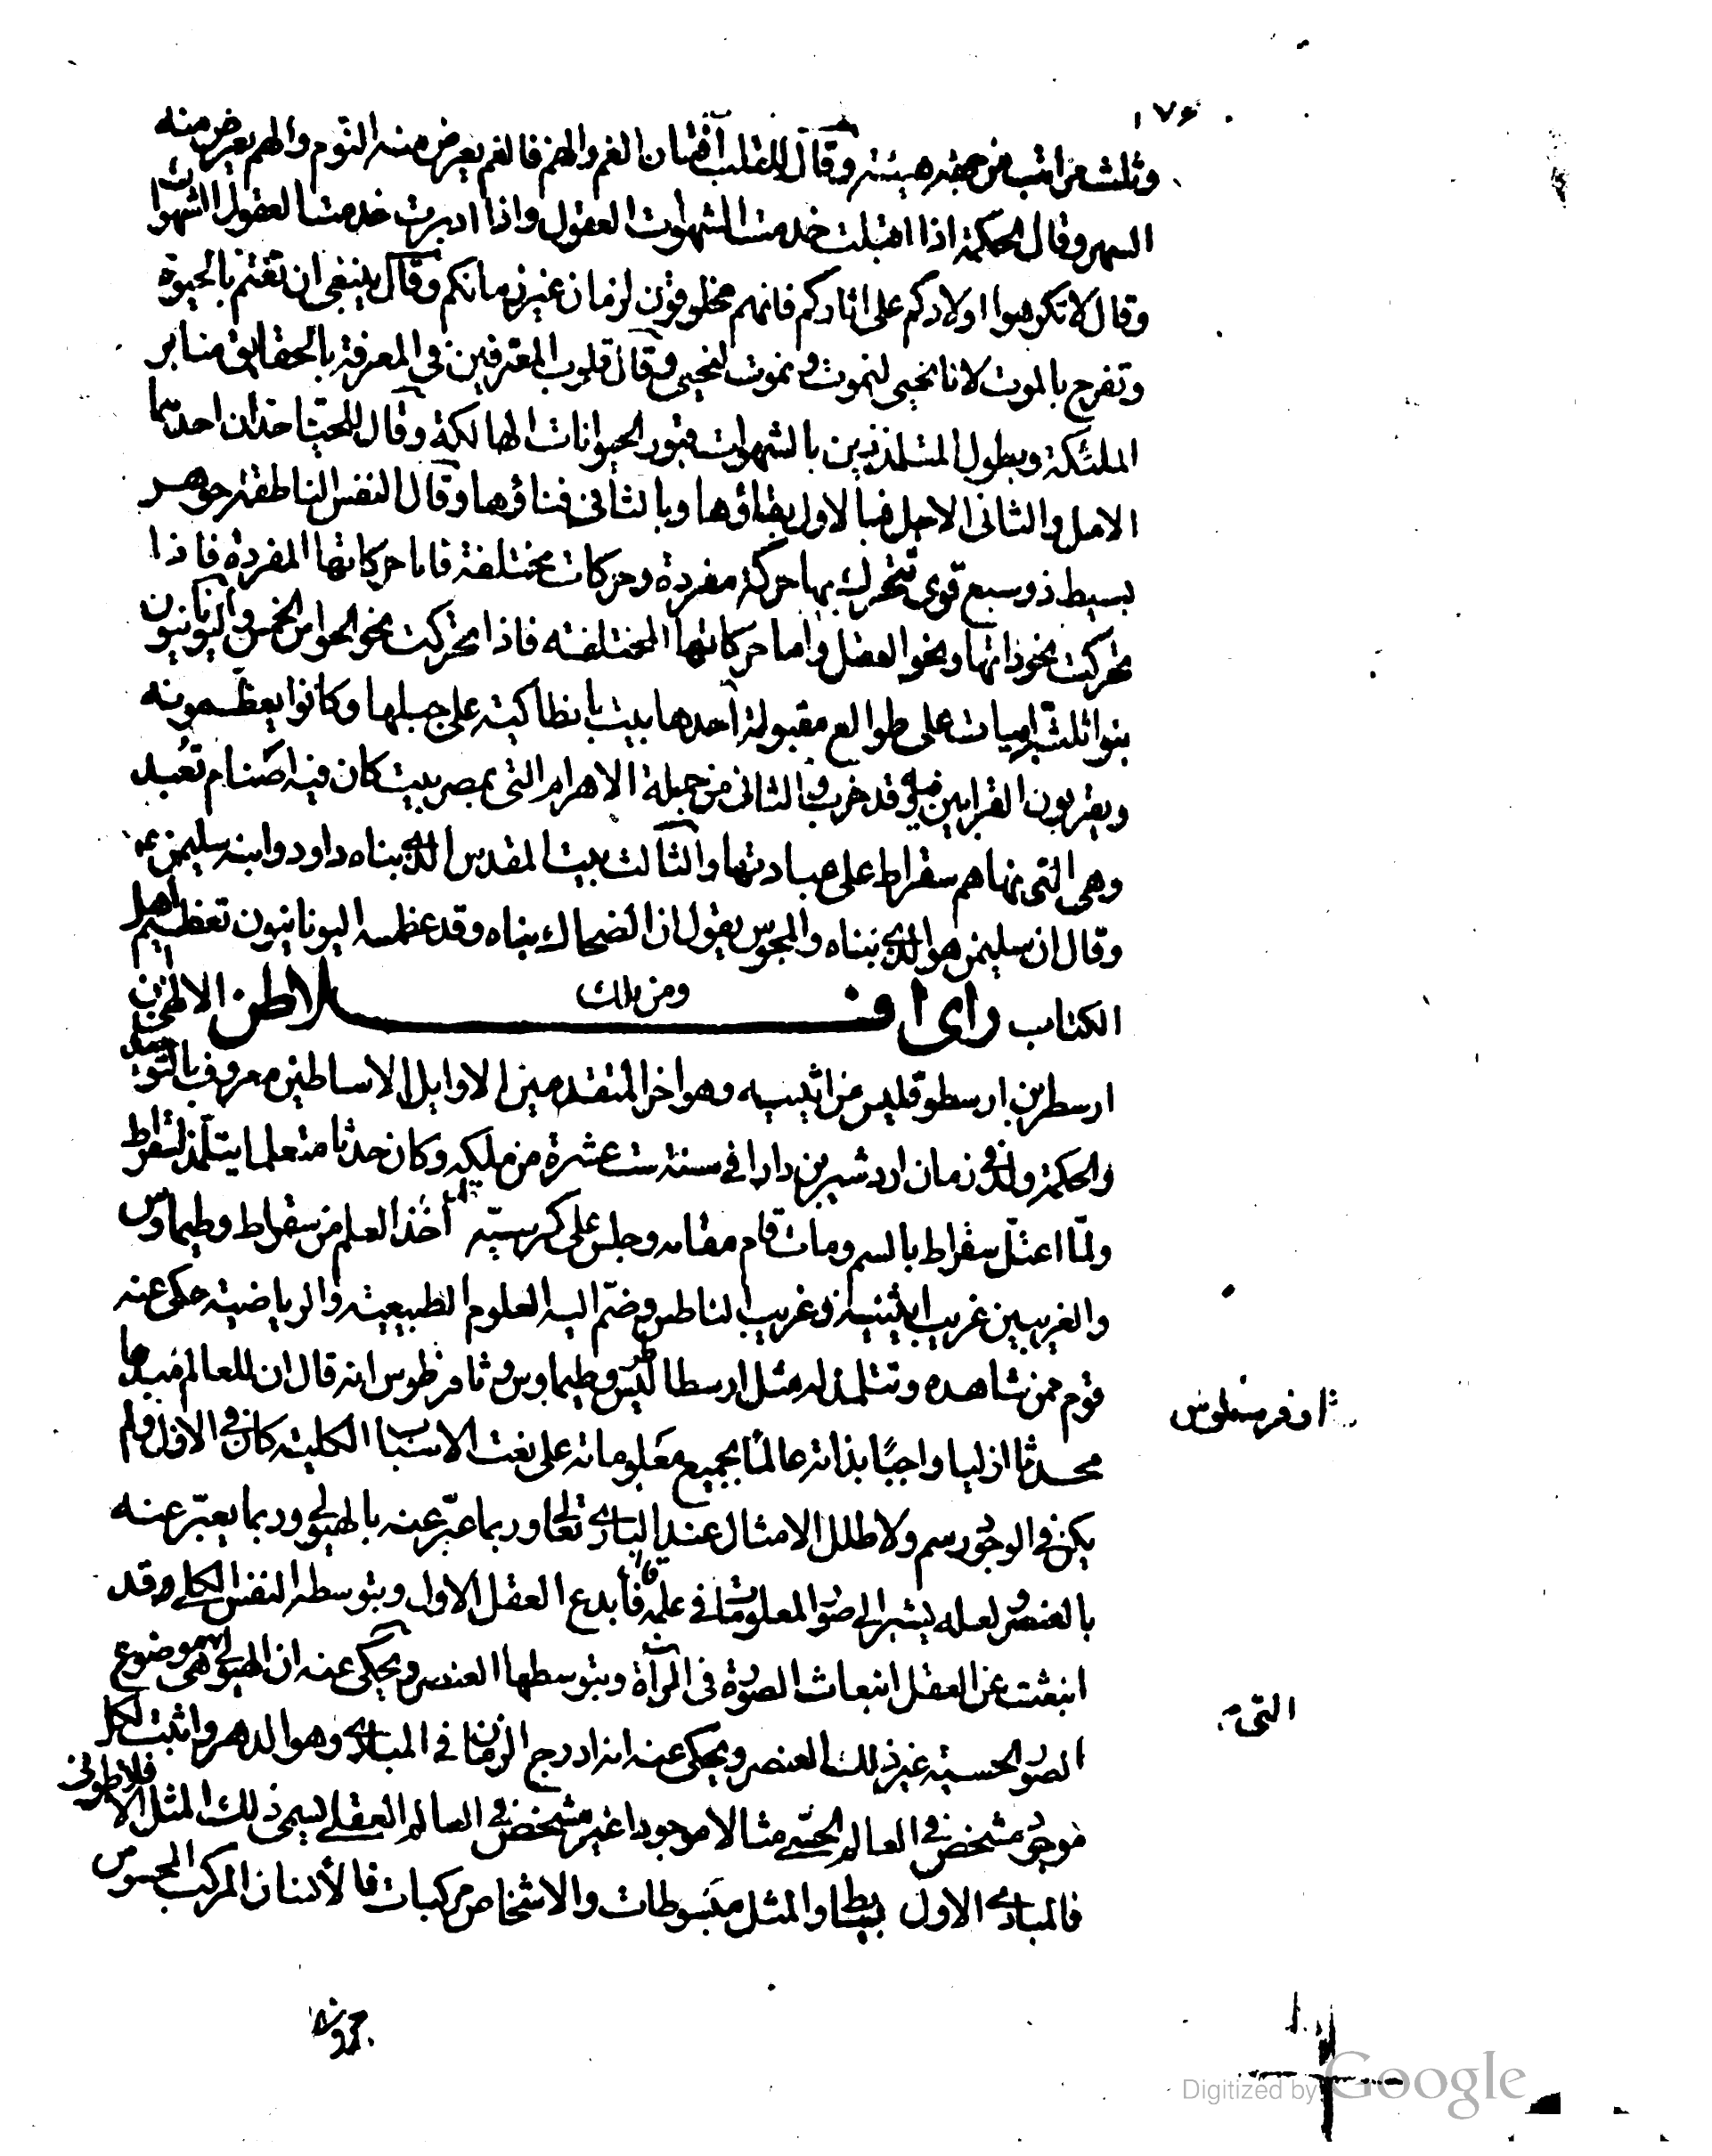 ١٧۶
وثلث مراتب من جهة هيئته وقال للقلب آفتان الغم والهم فالغم يعرض منه النوم والهم يعرض منه
السهر وقال الحكمة اذا اقبلت خدمت الشهوات العقول واذا ادبرت خدمت العقول الشهوات
وقال لا تكرهوا اولادكم على اثاركم فانهم مخلوقون لزمان غير زمانكم وقال ينبغى ان تغتم بالحيوة
وتفرح بالموت لانا نحيى لنموت ونموت لنحيى وقال قلوب المعترفين فى المعرفة بالحقايق منابر
الملئكة وبطول المتلذذين بالشهوات قبور الحيوانات الهالكة وقال للحيتاحدان احديهما
الامل والثانى الاجل فبالاول بقاؤها وبالثانى فناؤها وقال النفس الناطقة جوهر
بسيط ذو سبع قوى تتحرك بها حركة مفردة وحركات مختلفة فاما حركاتها المفردة فاذا
تحركت نحو ذاتها ونحو العقل واما حركاتها المختلفة فاذا تحركت نحو الحواس الخمس واليونانيون
بنوا ثلثة ابيات على طوالع مقبولة احدها بيت بانطاكية على جبلها وكانوا يعظمونه
ويقربون القرابين فيه وقد خرب والثانى من جملة الاهرام التى بمصر بيت كان فيه اصنام تعبد
وهى التى نهاهم سقراط على عبادتها والثالث بيت المقدس الذى بناه داود وابنه سليمن ع م
وقال ان سليمن هو الذى بناه والمجوس يقول ان الضحاك بناه وقد عظمه اليونانيون تعظيم اهل
الكتاب راى افــلاطن الالهى بن
ومن ذلك
ارسطن بن ارسطوقليس من اثينيه وهو اخر المتقدمين الاوايل الاساطين معروف بالتوحيد
والحكمة ولد فى زمان اردشير بن دارا فى سنة ست عشرة من ملكه وكان حدثا متعلما يتلمذ لسقراط
ولما اعتل سقراط بالسم ومات قام مقامه وجلس على كرسيه اخذ العلم من سقراط وطيماوس
والغريبين غريب اثينيه وغريب الناطس وضم اليه العلوم الطبيعية والرياضية حكى عنه
قوم ممن شاهده وتتلمذ له مثل ارسطاطاليس وطيماوس وثافرطوس انه قال ان للعالم مبدعا
ثاوفرسطوس
محدثا ازليا واجبا بذاته عالما بجميع معلوماته على نعت الاسباب الكلية كان فى الازل ولم
يكن فى الوجود رسم ولا طلل الا مثال عند البارى تعالى وربما عبر عنه بالهيولى وربما يعبر عنه
بالعنصر ولعله يشير الى صور المعلومات فى علمه قال فابدع العقل الاول وبتوسطه النفس الكلى وقد
انبعثت عن العقل انبعاث الصورة فى المرآة وبتوسطها العنصر ويحكى عنه ان الهيولى هى موضوع
التى
الصور الحسية غير ذلك العنصر ويحكى عنه انه ادرج الزمان فى المبادى وهو الدهر واثبت لكل
موجود مشخص فى العالم الحسى مثالا موجودا غير مشخص فى العالم العقلى يسمى ذلك المثل الافلاطونى
فالمبادى الاول بسايط والمثل مبسوطات والاشخاص مركبات فالانسان المركب المحسوس
Digitized by Google